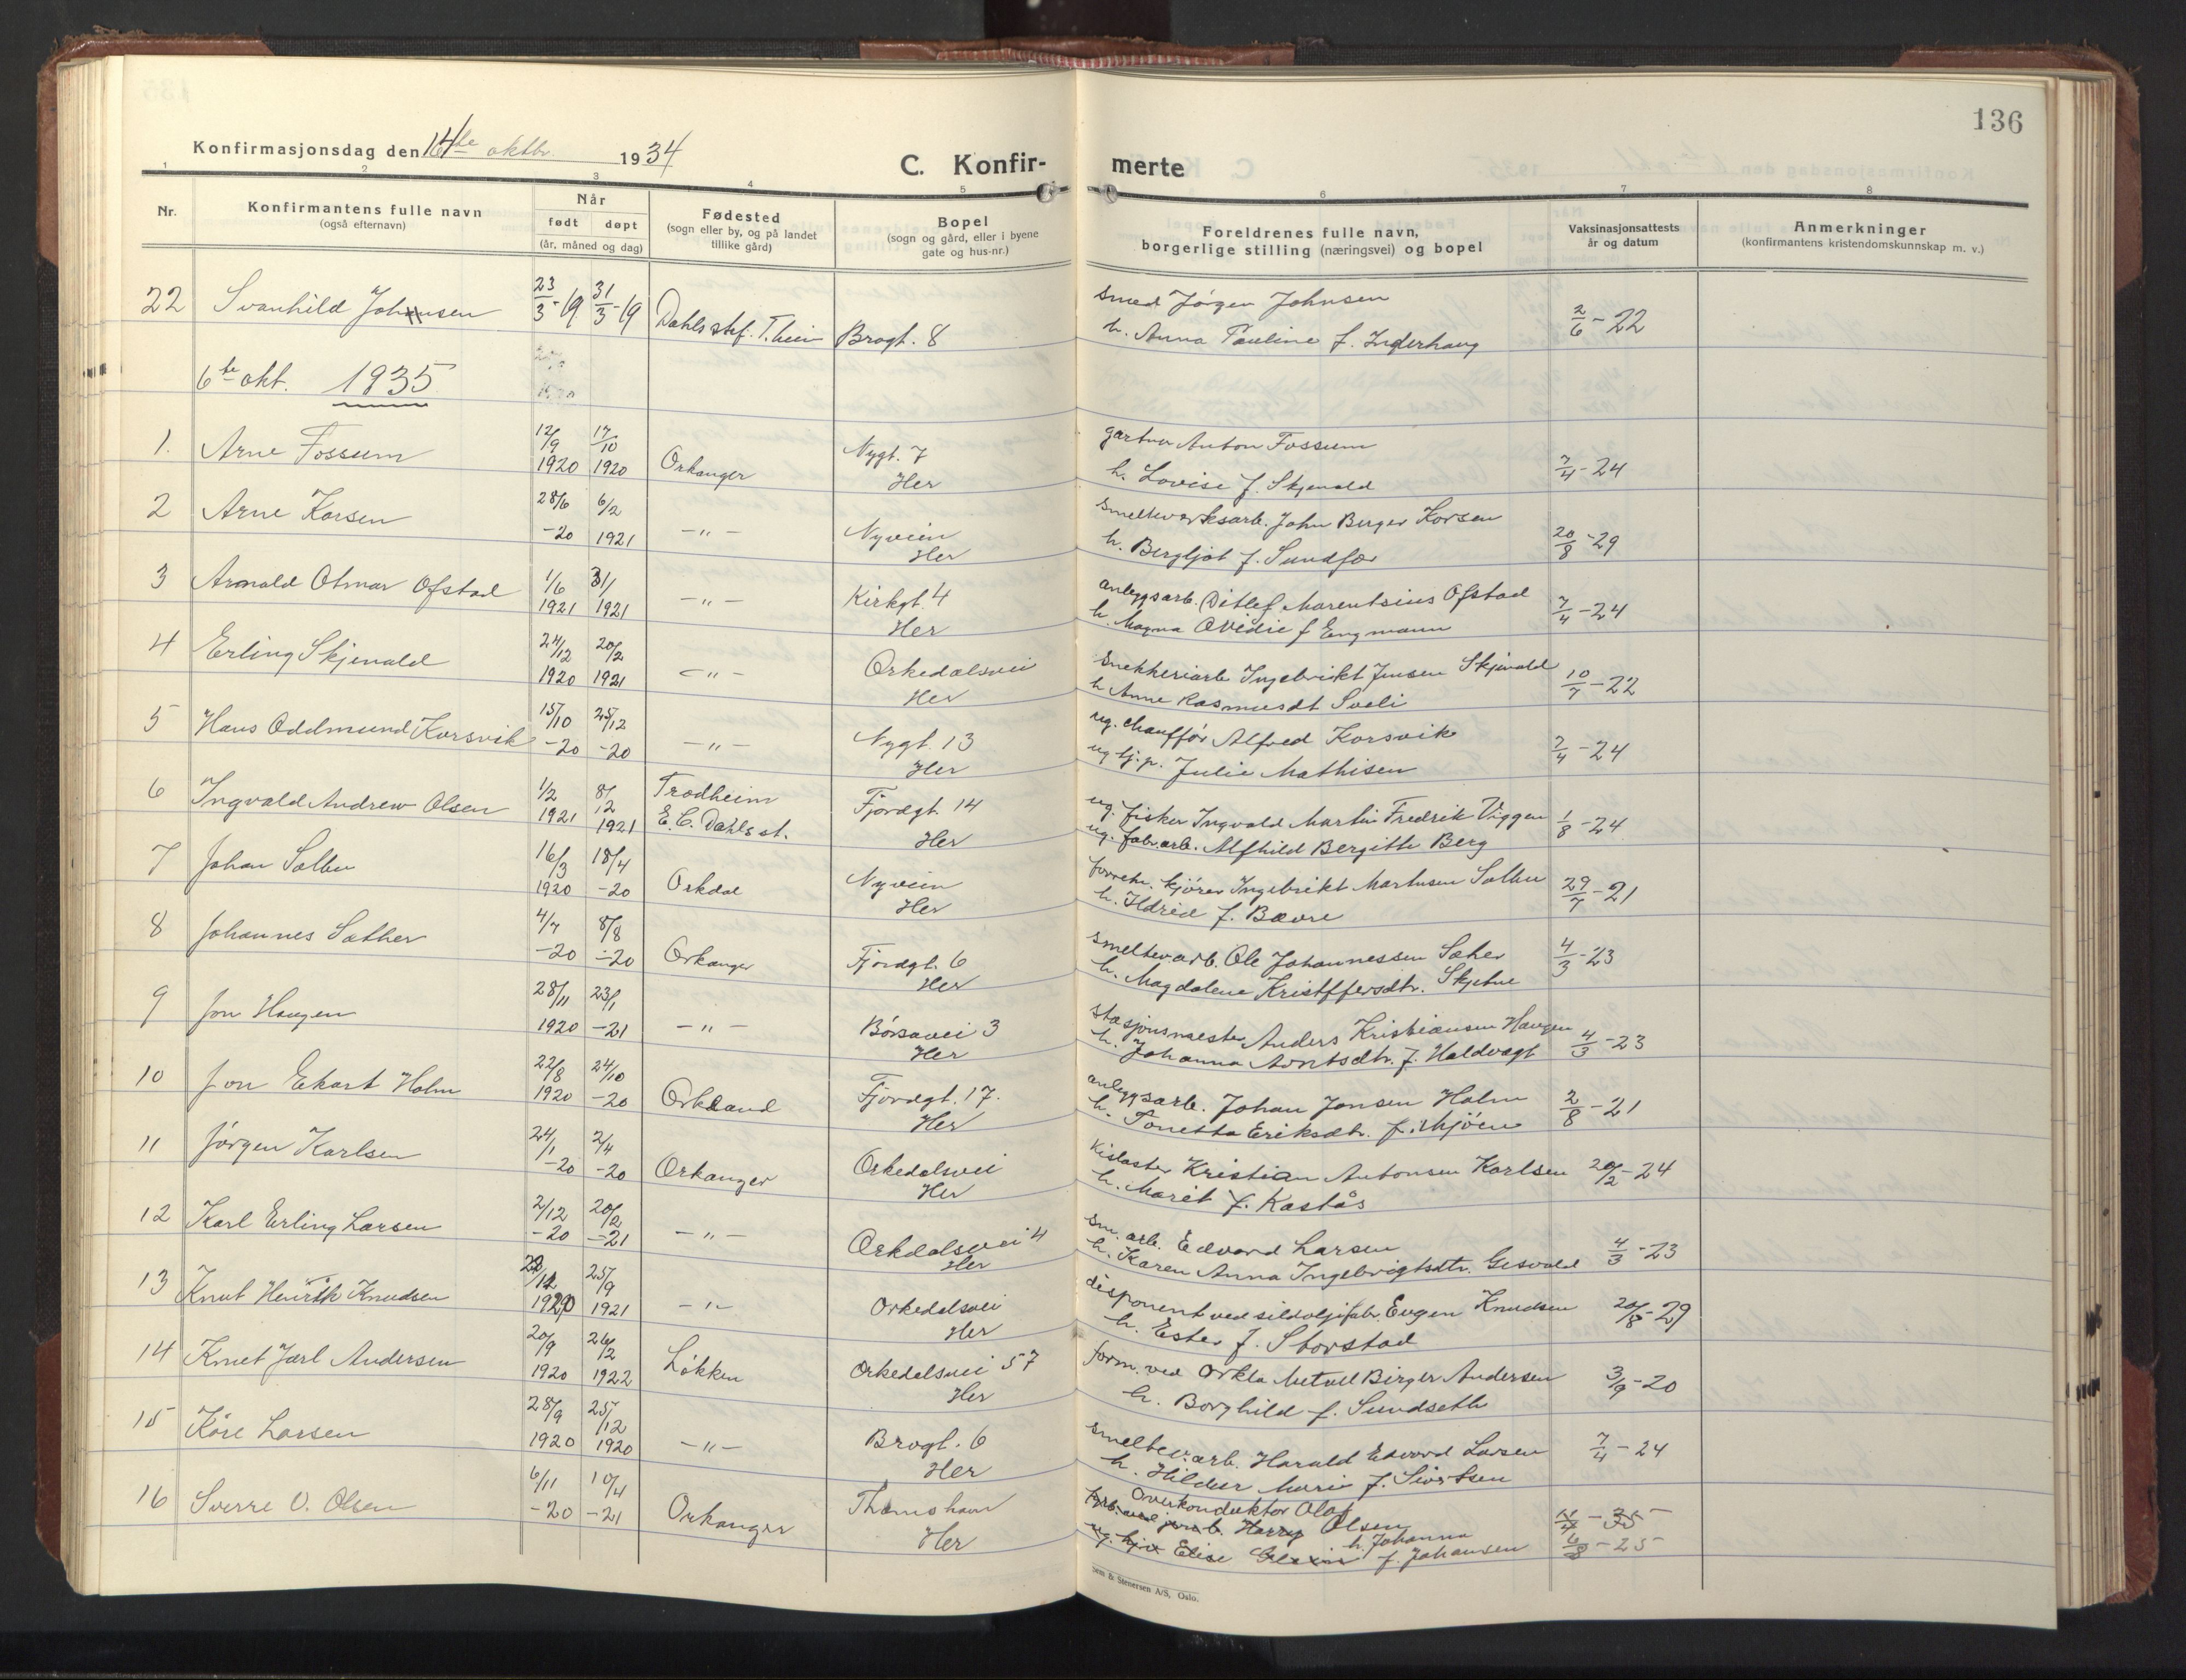 136
Konfirmasjonsdag den 14de oktbr. 1934
C. Konfir- merte
1 2 3 4 5 6 7 8
Nr. Konfirmantens fulle navn (også efternavn) Når født døpt (år, måned og dag) Fødested (sogn eller by, og på landet tillike gård) Bopel (sogn og gård, eller i byene gate og hus-nr.) Foreldrenes fulle navn, borgerlige stilling (næringsvei) og bopel Vaksinasjonsattests år og datum Anmerkninger (konfirmantens kristendomskunnskap m. v.)
22 Svanhild Johnsen 23/3-19 31/3-19 Dahls stif. T.heim Brogt. 8 smed Jørgen Johnsen 2/6-22
h. Anna Pauline f. Inderhaug
6te okt. 1935
1. Arne Fossum 12/9 1920 17/10 1920 Orkanger Nygt. 7 gartner Anton Fossum 7/4-24
Her h. Lovise f. Skjenald
2 Arne Korsen 28/6 -20 6/2 1921 -"- Nyveien smelteverksarb. John Birger Korsen 20/8-29
Her h. Bergljot f. Sundfær
3 Arnold Otmar Ofstad 1/6 1921 31/1 1921 -"- Kirkgt. 4 anleggsarb. Ditlef Marentsius Ofstad 7/4-24
Her h. Magna Ovidie f Engmann
4 Erling Skjenald 24/12 1920 20/2 1921 -"- Orkedalsvei snekkeriarb Ingebrikt Jensen Skjenald 10/7-22
Her h Anne Rasmusdt Soeli
5 Hans Oddmund Korsvik 15/10 -20 25/12 -20 -"- Nygt. 13 ug. chauffør Alfred Korsvik 7/4-24
Her ug tj.p. Julie Mathisen
6 Ingvald Andrew Olsen 1/2 1921 8/12 1921 Trodheim Fjordgt. 14 ug. fisker Ingvald Martin Fredrik Viggen 1/8-24
E. C. Dahls st. Her ug. fabr.arb. Alfhild Bergithe Berg
7 Johan Solbu 16/3 1920 18/4 -20 Orkdal Nyveien forretn. kjører Ingebrikt Martinsen Solbu 29/7-21
Her h. Ildrid f. Bævre
8 Johannes Sæther 4/7 -20 8/8 -20 Orkanger Fjordgt. 6 smeltev.arb. Ole Johannessen Sæher 4/3-23
Her h. Magdalene Kristffersdtr. Skjetne
9 Jon Haugen 28/11 1920 23/1 -21 -"- Børsavei 3 stasjonsmester Anders Kristiansen Haugen 4/3-23
Her h. Johanna Arntsdtr. f. Haldvagt
10 Jon Ekart Holm 22/8 1920 24/10 -20 Orkland Fjordgt. 17. anleggsarb. Johan Jonsen Holm 2/8-21
Her h. Tonetta Eriksdtr. f. Mjøen
11 Jørgen Karlsen 24/1 -20 2/4 -20 Orkanger Orkedalsvei Kislaster Kristian Antonsen Karlsen 20/2-24
Her h. Marit f. Kastås
12 Karl Erling Larsen 2/12 -20 20/2 -21 -"- Orkdalsvei 4 sm. arb. Edvard Larsen 4/3-23
Her h. Karen Anna Ingebrigtsdtr. Gisvold
13 Knut Henrik Knudsen 1920 25/9 1921 -"- Orkedalsvei disponent ved sildoljefabr. Eugen Knudsen 20/8-29
Her h. Ester f. Storstad
14 Knut Jarl Andersen 20/9 1920 26/2 1922 Løkken Orkedalsvei 57 form. ved Orkla Metall Birger Andersen 3/9-20
Her h. Borghild f. Sundseth
15 Kåre Larsen 28/9 1920 25/12 1920 -"- Brogt. 6 smeltev.arb. Harald Edvard Larsen 7/4-24
Her h. Hildur Marie f. Sivertsen
16 Sverre O. Olsen 6/11 -20 10/4 -21 Orkanger Thamshavn Overkonduktør Olaf
Harry Olsen -35
Her ug. Elise h. Johanna f. Johansen 6/8-25
Sem & Stenersen A/S, Oslo.